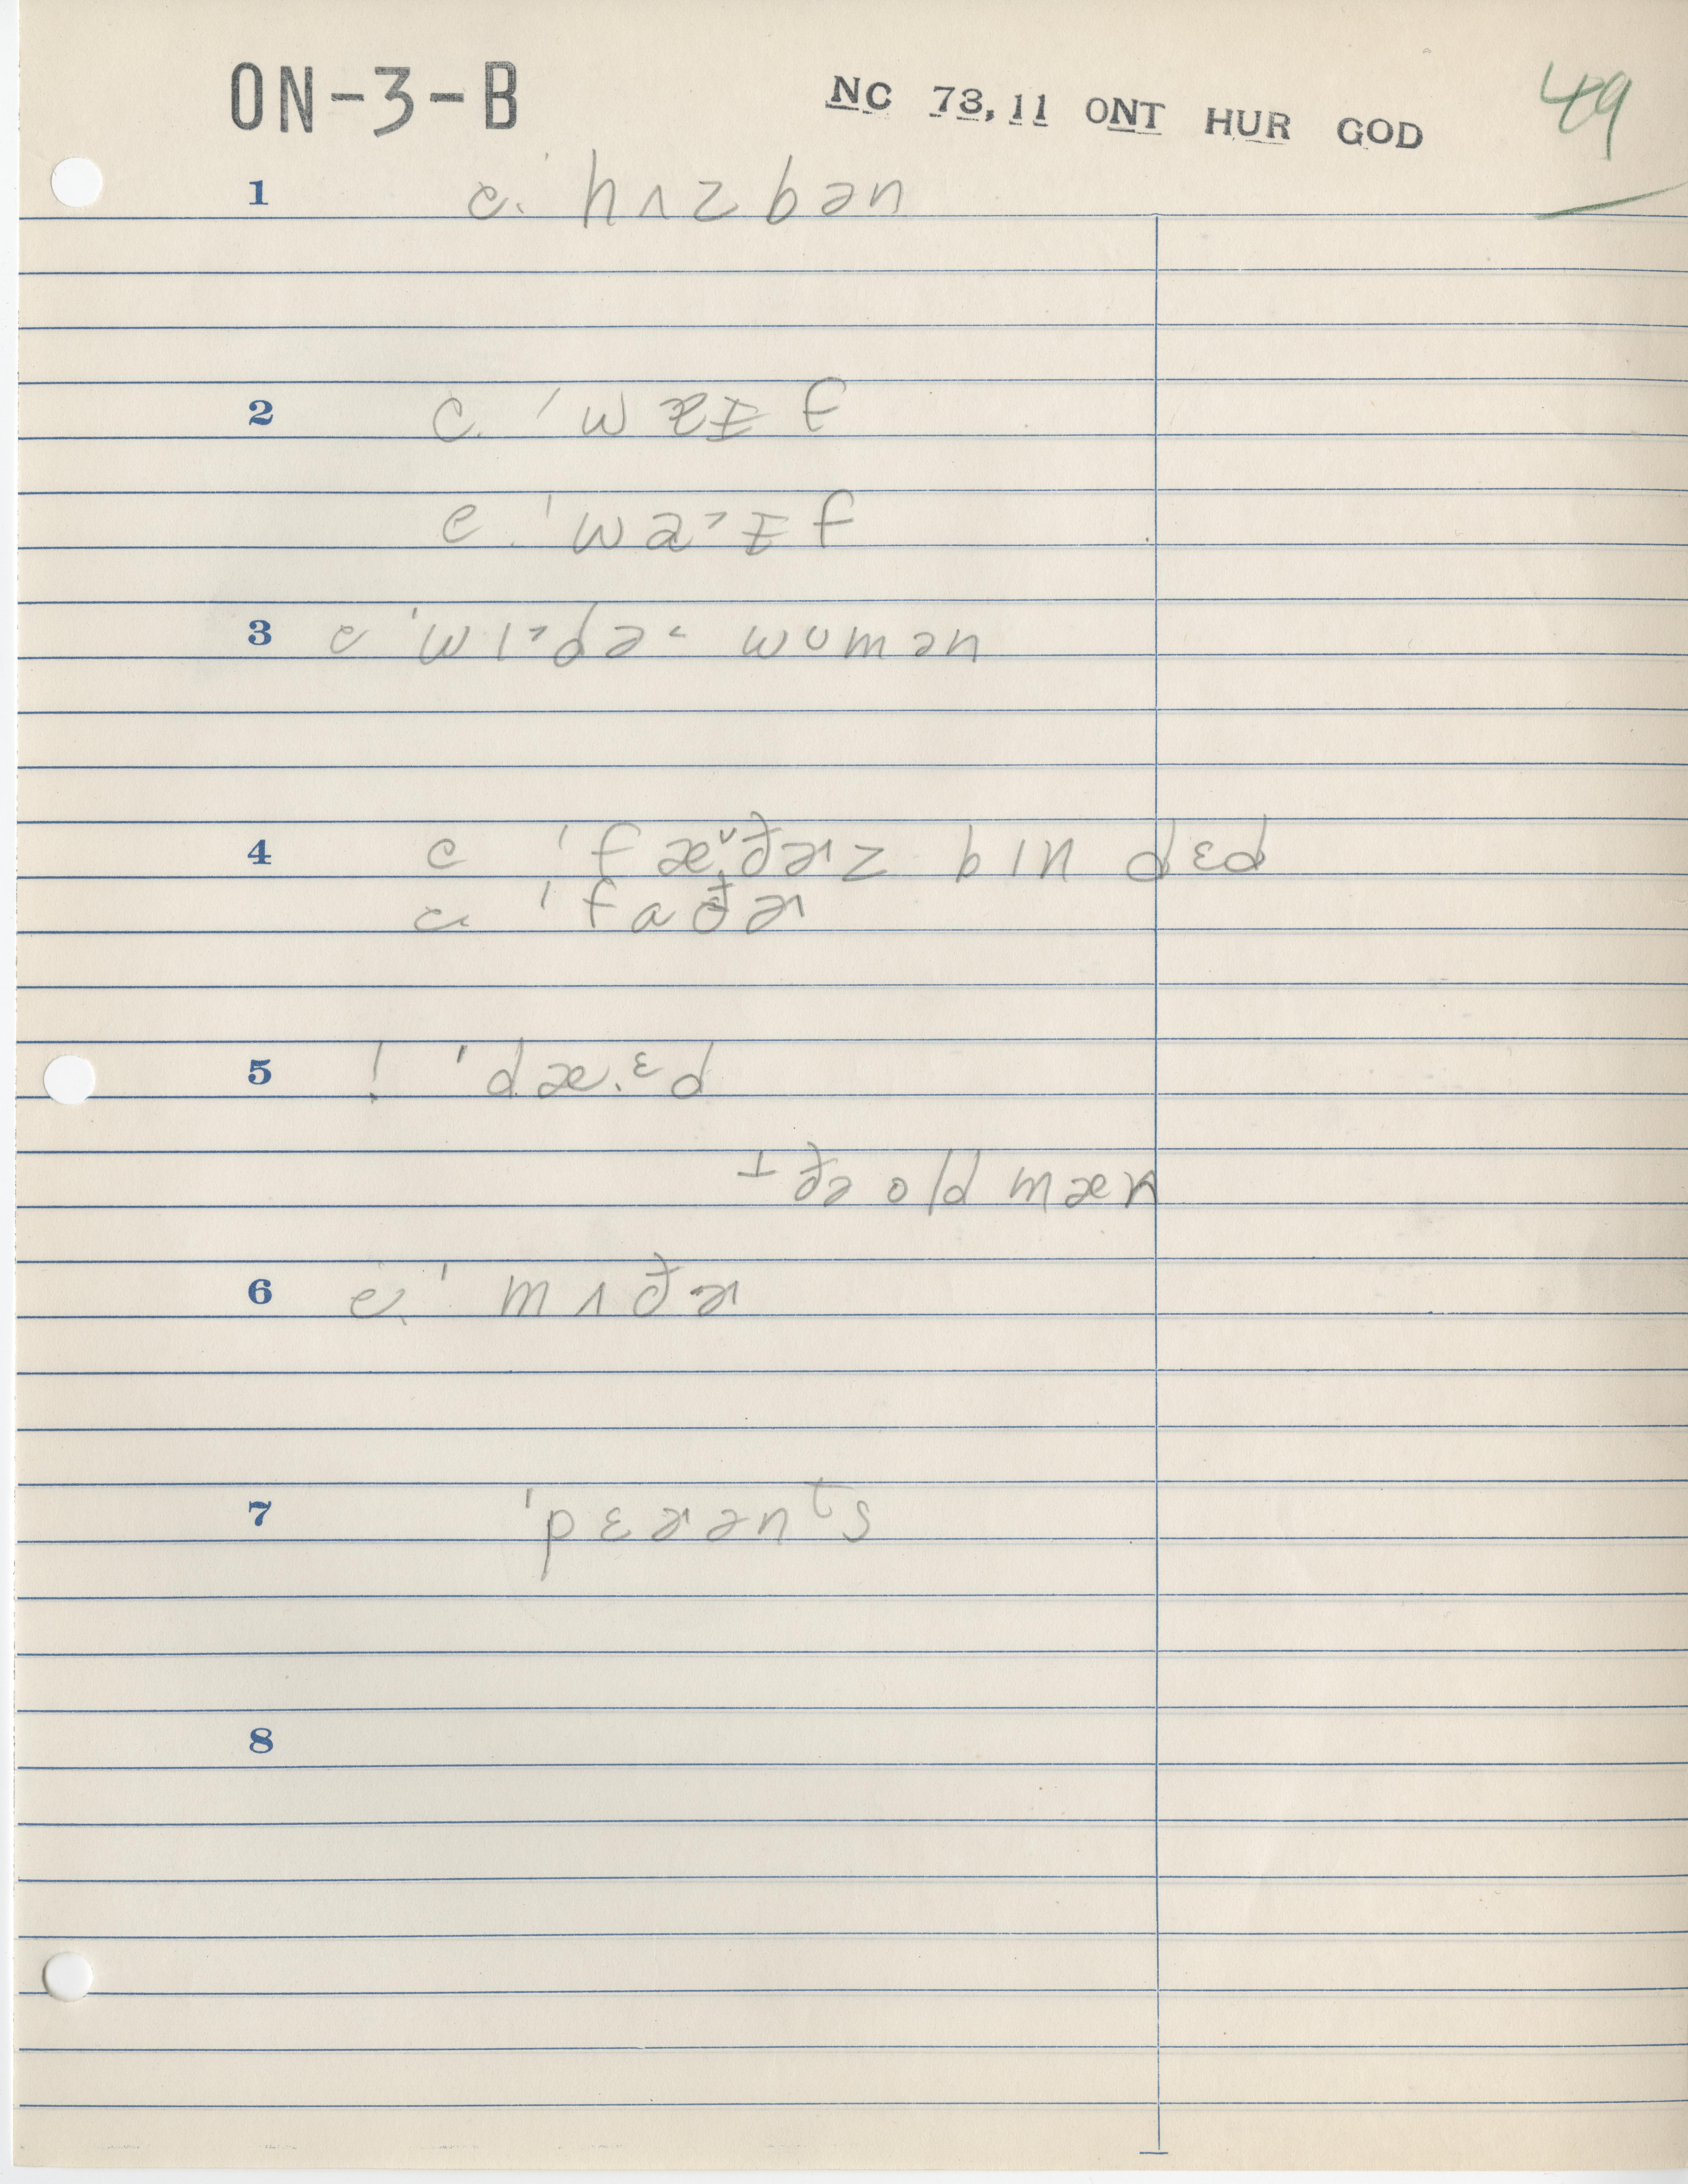 ON-3-B NC 73,11 ONT HUR GOD 49
1 c. ˈhʌzbən
2 c. ˈwaɪf
c. ˈwa˃ɪf
3 c ˈwɪ˃də˂ womən
4 c ˈfæ˅ðɚz bɪn dɛd
c. ˈfaðɚ
5 ! ˈdæ.ᵋd
⊥ ðə old mæn
6 c. ˈmʌðɚ
7 ˈpɛɚənᵗs
8